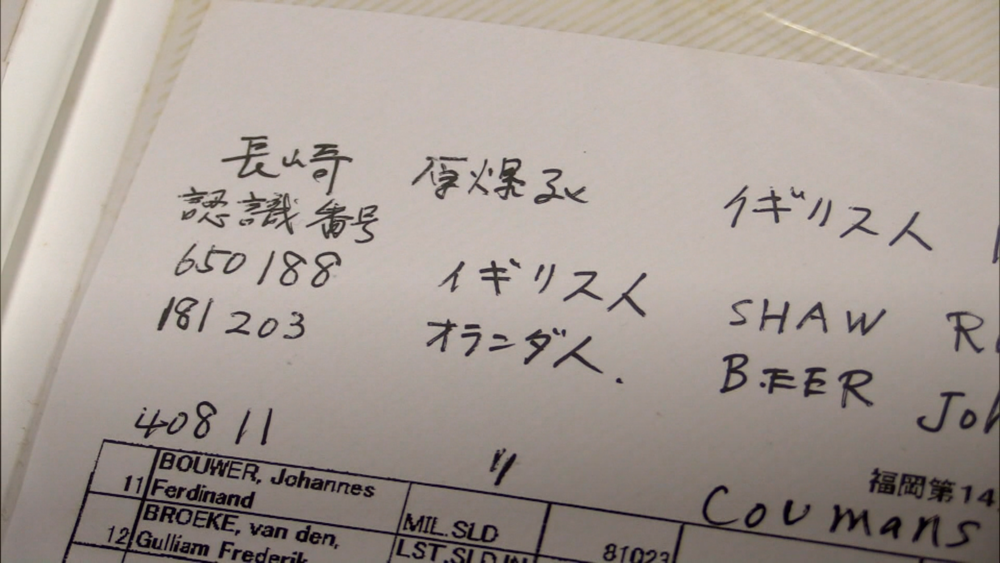 長崎 原爆死 イギリス人
認識番号
650188 イギリス人 SHAW R
181203 オランダ人. B.EER Joh
40811 〃 Coumans
福岡第14
11 BOUWER, Johannes Ferdinand MIL.SLD
12 BROEKE, van den, Gulliam Frederik LST.SLD 81023